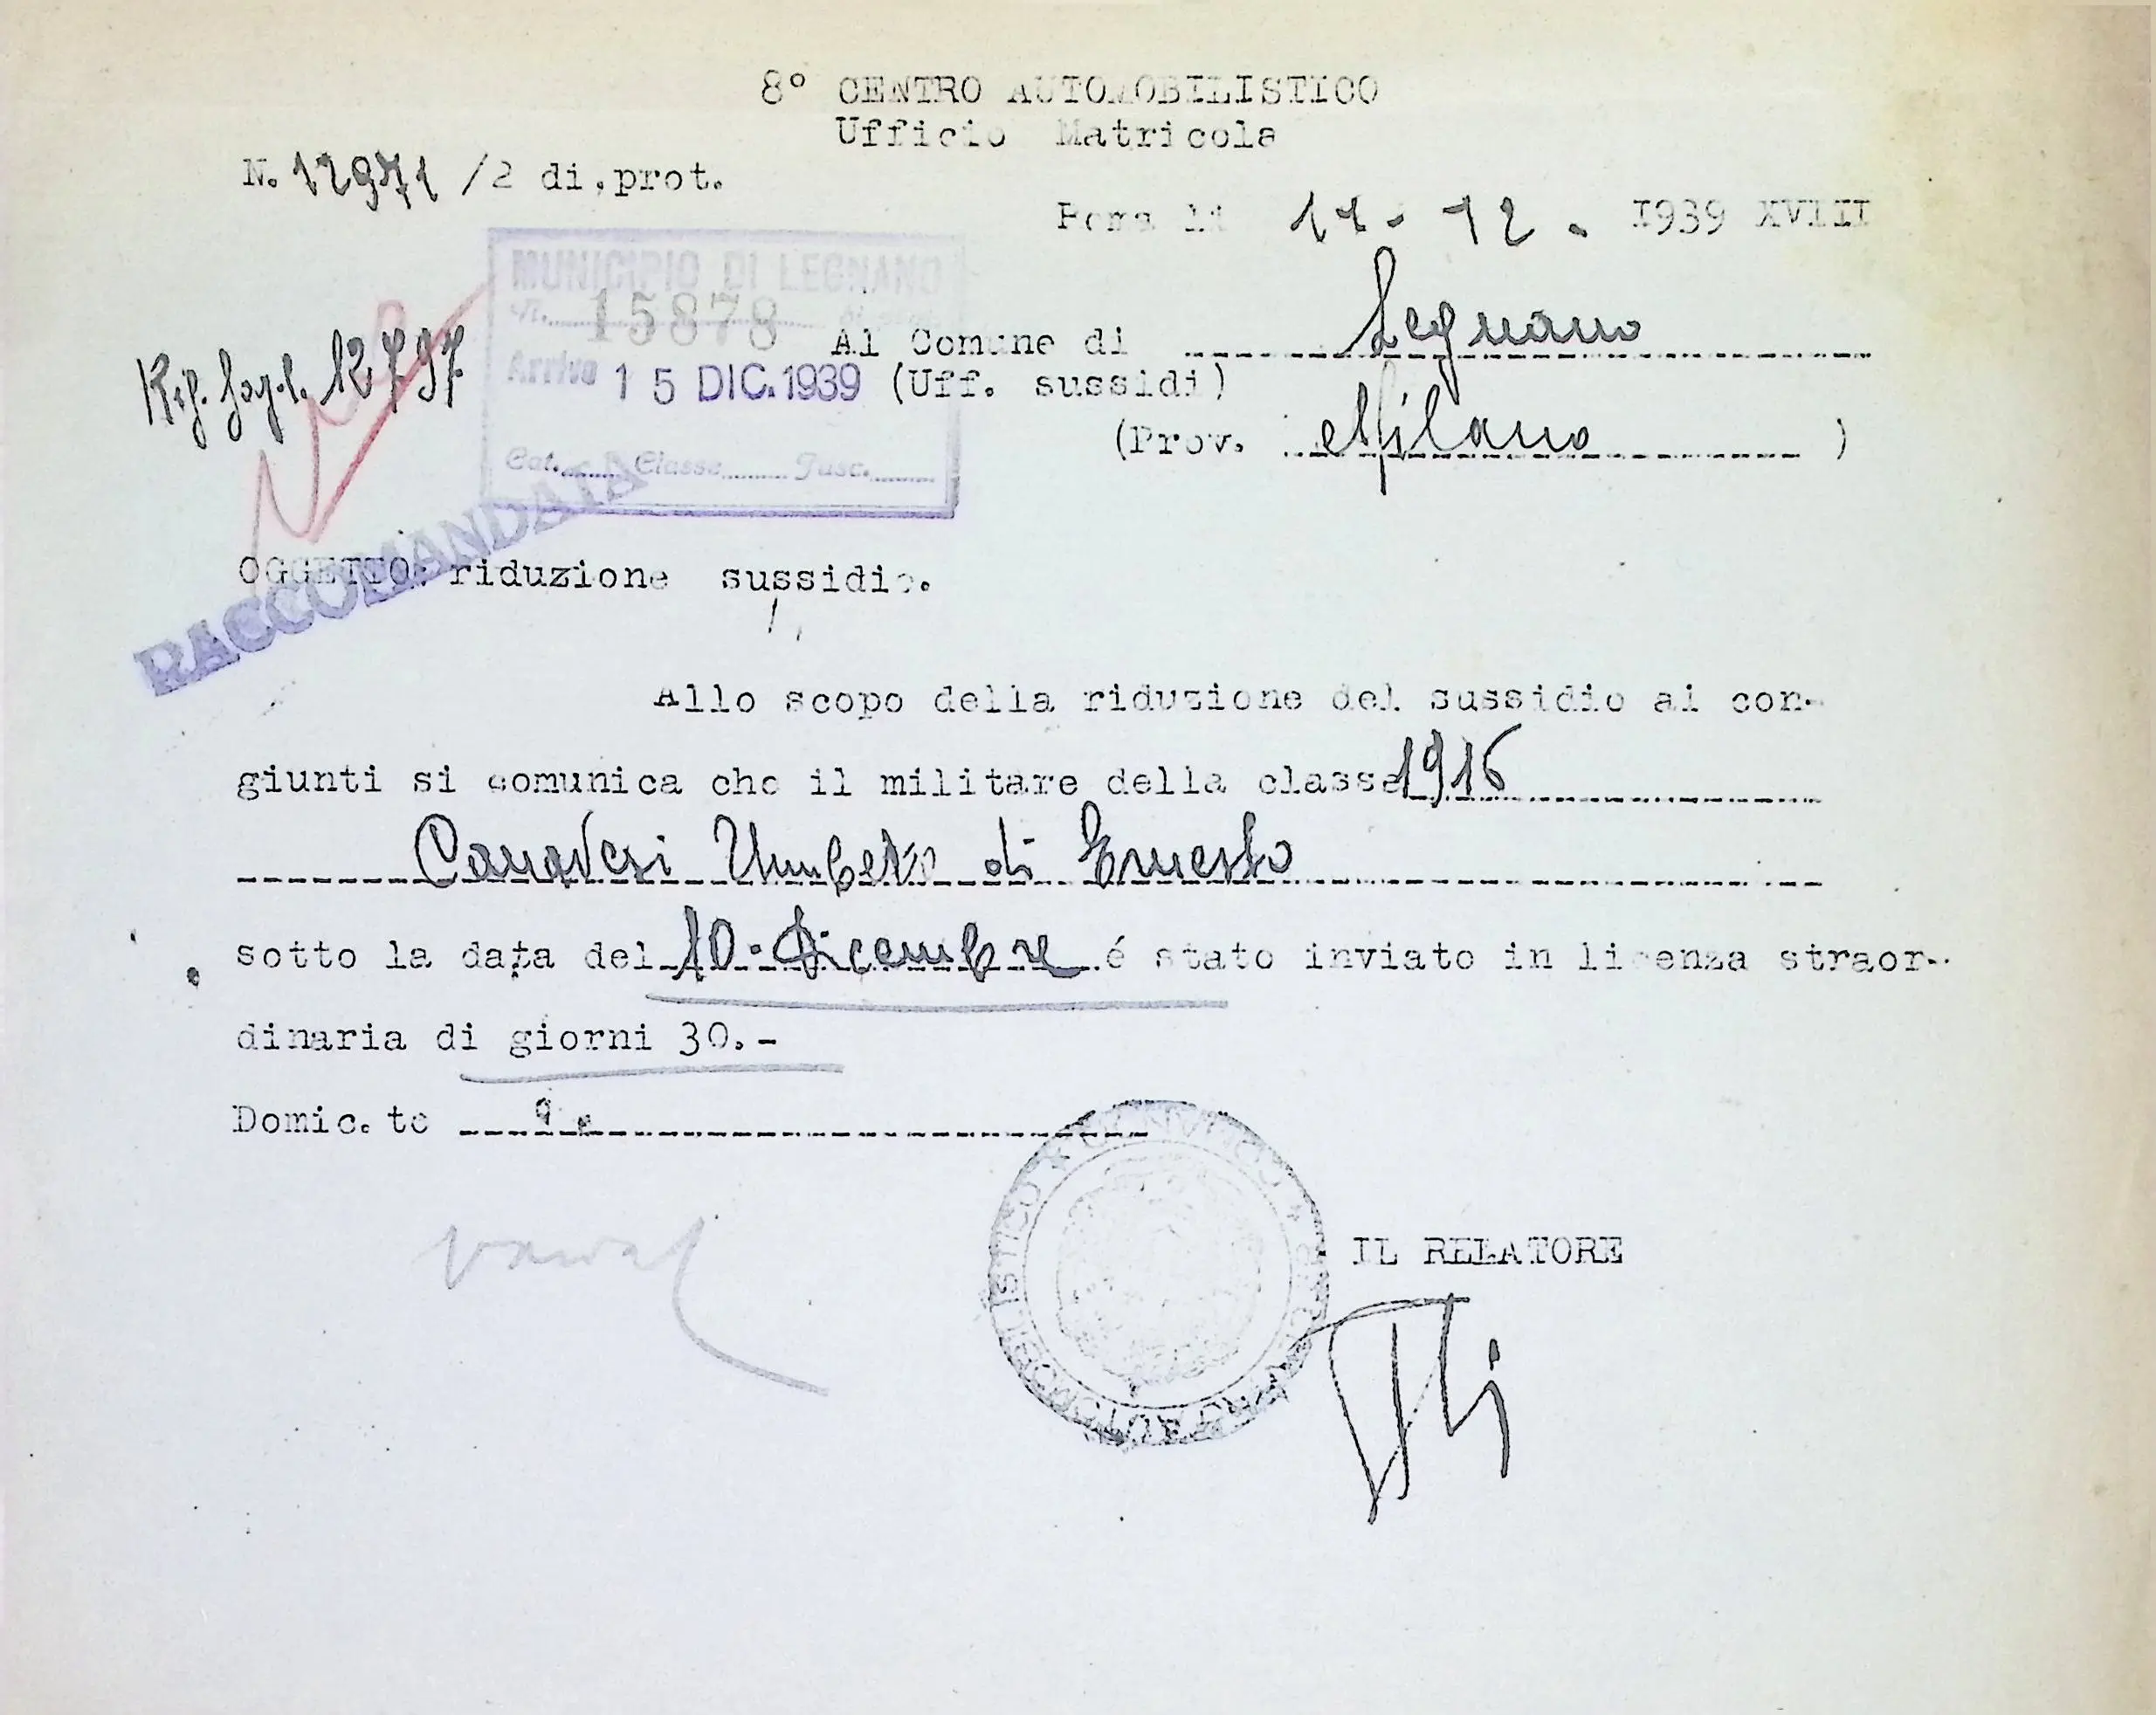 8° CENTRO AUTOMOBILISTICO
Ufficio Matricola
N. 12971 /2 di prot.
Roma li 11 - 12 . 1939 XVIII
MUNICIPIO DI LEGNANO
N. 15878 di prot.
Arrivo 15 DIC. 1939
Cat. Classe Fasc.
Rif. fogl. 12797
Al Comune di Legnano
(Uff. sussidi)
(Prov. Milano )
RACCOMANDATA
OGGETTO: riduzione sussidio.
Allo scopo della riduzione del sussidio ai con-
giunti si comunica che il militare della classe 1916
Canavesi Umberto di Ernesto
sotto la data del 10 Dicembre é stato inviato in licenza straor-
dinaria di giorni 30.-
Domic. to
IL RELATORE